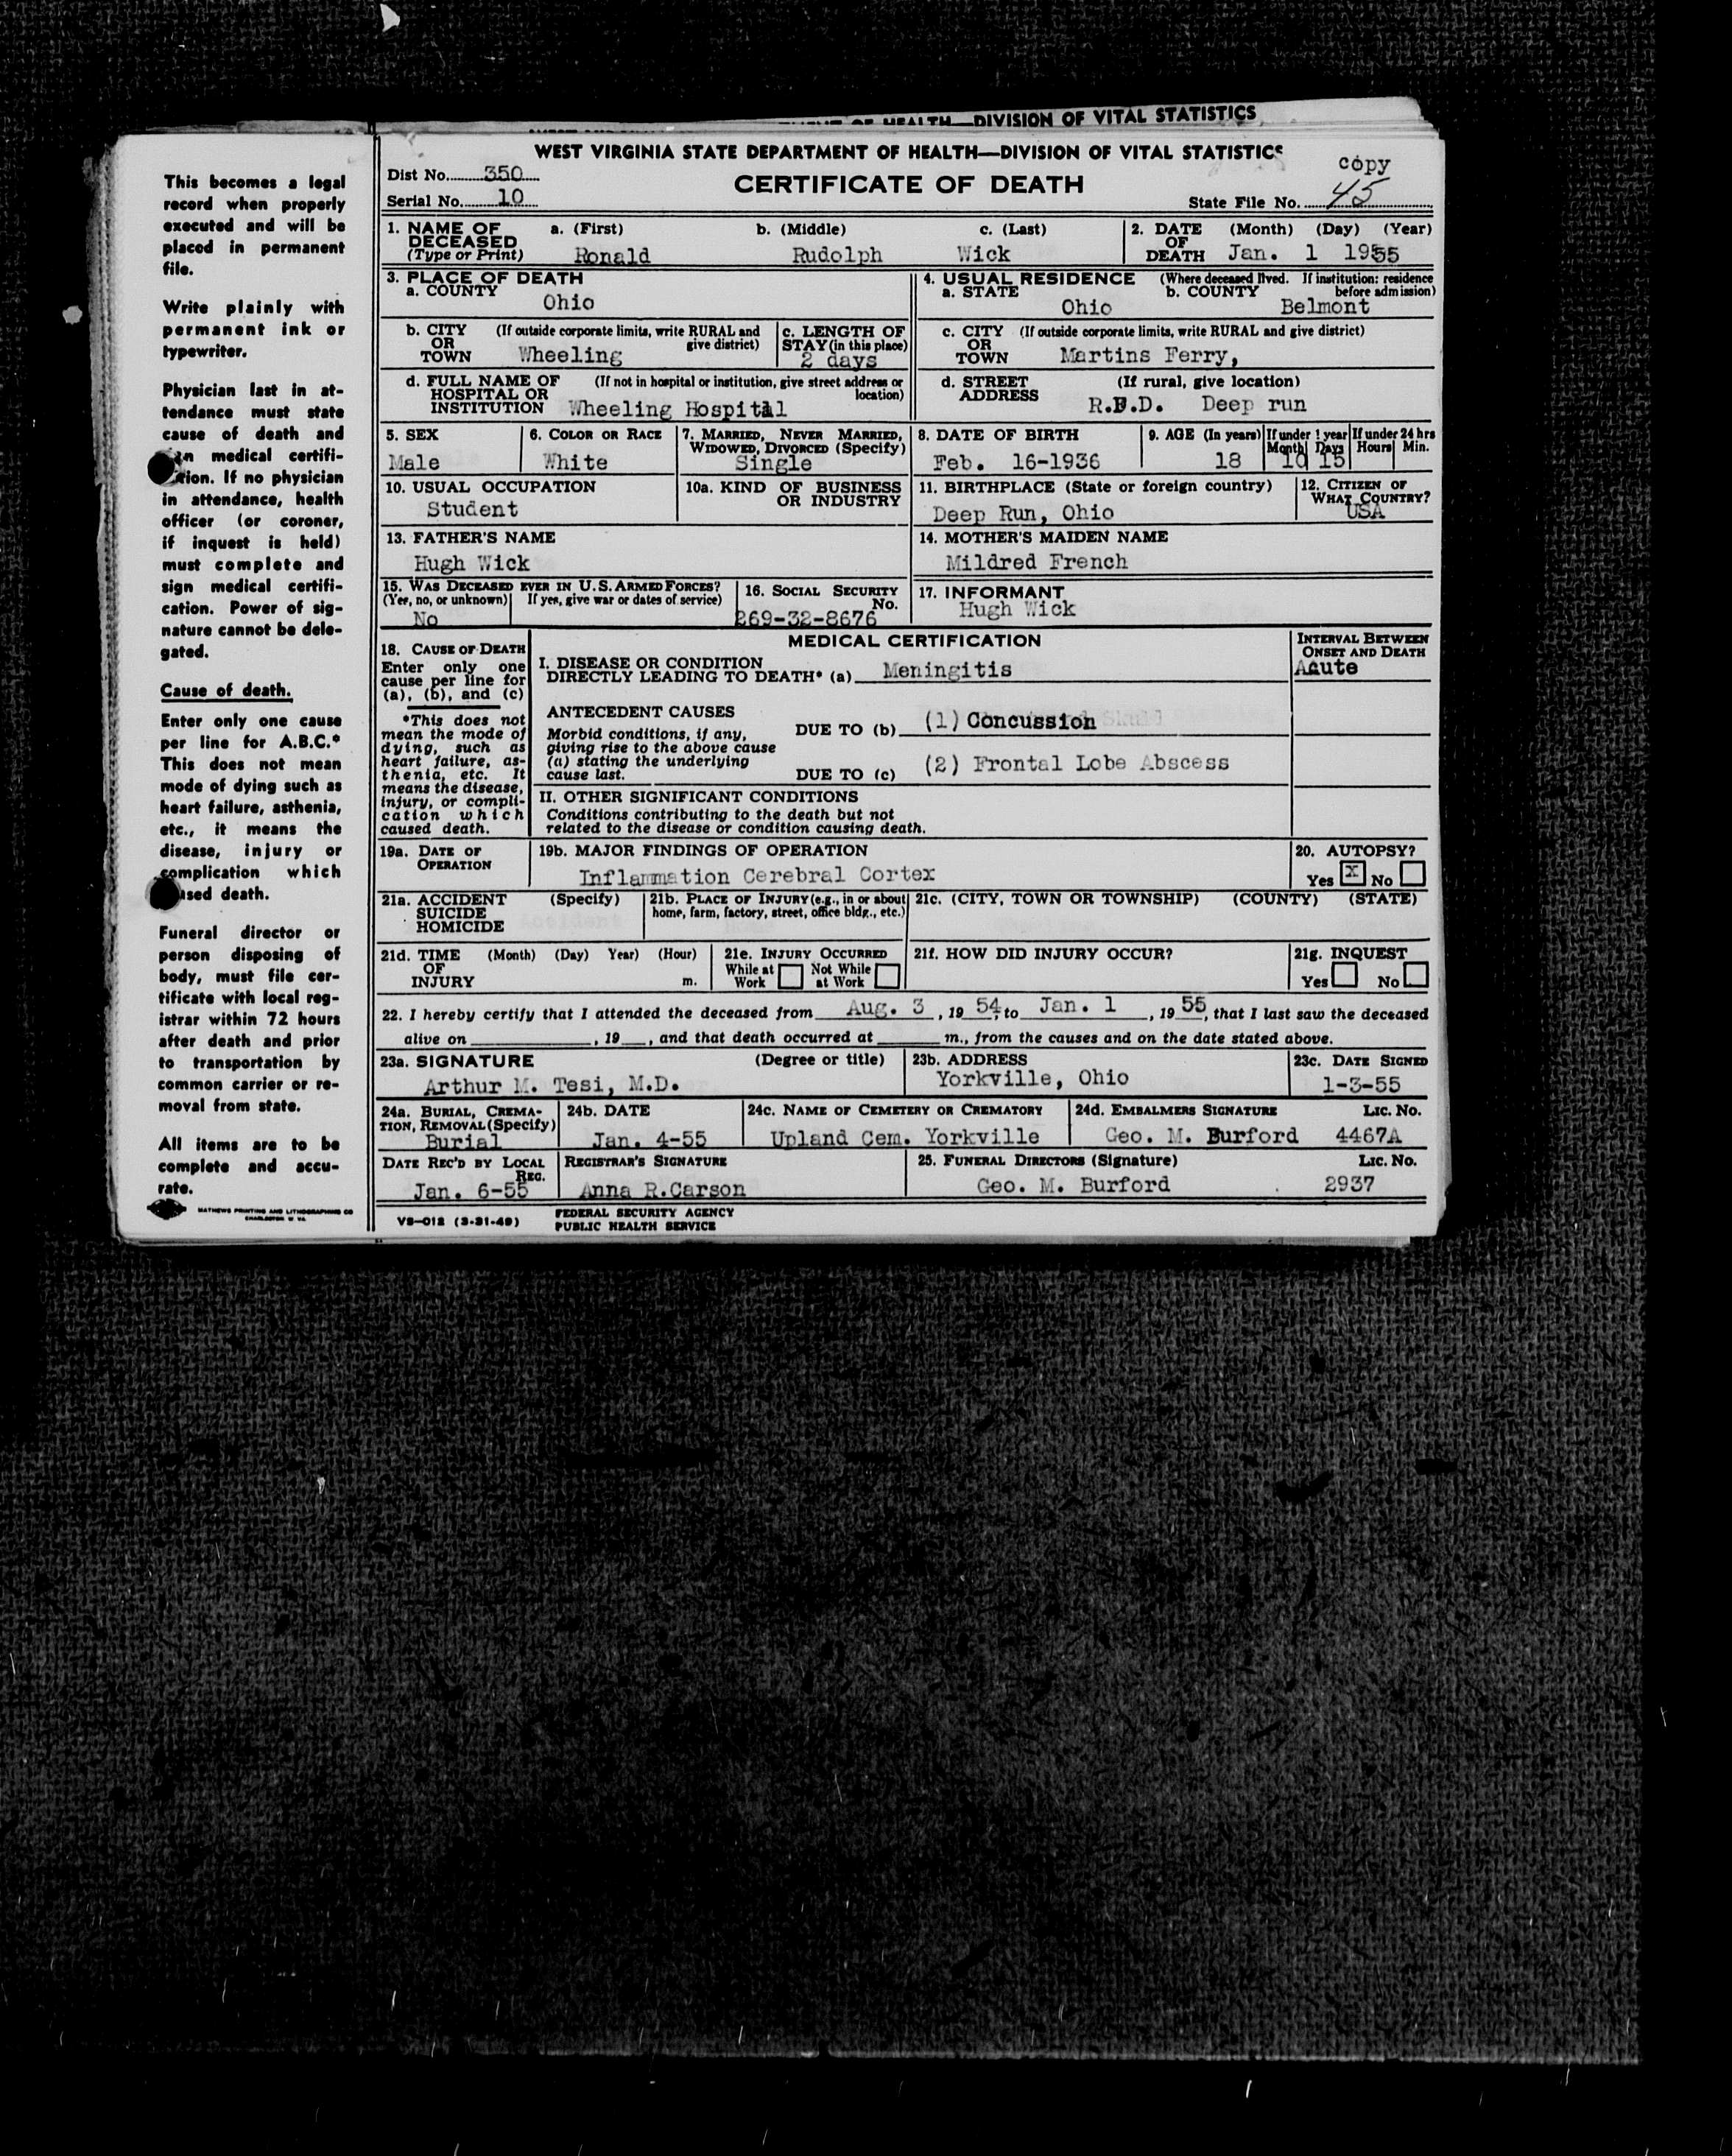 HEALTH—DIVISION OF VITAL STATISTICS
This becomes a legal
record when properly
executed and will be
placed in permanent
file.
Write plainly with
permanent ink or
typewriter.
Physician last in at-
tendance must state
cause of death and
medical certifi-
tion. If no physician
in attendance, health
officer (or coroner,
if inquest is held)
must complete and
sign medical certifi-
cation. Power of sig-
nature cannot be dele-
gated.
Cause of death.
Enter only one cause
per line for A.B.C.*
This does not mean
mode of dying such as
heart failure, asthenia,
etc., it means the
disease, injury or
complication which
used death.
Funeral director or
person disposing of
body, must file cer-
tificate with local reg-
istrar within 72 hours
after death and prior
to transportation by
common carrier or re-
moval from state.
All items are to be
complete and accu-
rate.
MATHEWS PRINTING AND LITHOGRAPHING CO
CHARLESTON W VA
WEST VIRGINIA STATE DEPARTMENT OF HEALTH—DIVISION OF VITAL STATISTICS
copy
Dist No. 350
CERTIFICATE OF DEATH
Serial No. 10
State File No. 45
1. NAME OF DECEASED (Type or Print) a. (First) b. (Middle) c. (Last)
Ronald Rudolph Wick
2. DATE OF DEATH (Month) (Day) (Year)
Jan. 1 1955
3. PLACE OF DEATH
a. COUNTY
Ohio
4. USUAL RESIDENCE (Where deceased lived. If institution: residence before admission)
a. STATE b. COUNTY
Ohio Belmont
b. CITY OR TOWN (If outside corporate limits, write RURAL and give district)
Wheeling
c. LENGTH OF STAY (in this place)
2 days
c. CITY OR TOWN (If outside corporate limits, write RURAL and give district)
Martins Ferry,
d. FULL NAME OF HOSPITAL OR INSTITUTION (If not in hospital or institution, give street address or location)
Wheeling Hospital
d. STREET ADDRESS (If rural, give location)
R.F.D. Deep run
5. SEX
Male
6. COLOR OR RACE
White
7. MARRIED, NEVER MARRIED, WIDOWED, DIVORCED (Specify)
Single
8. DATE OF BIRTH
Feb. 16-1936
9. AGE (In years)
18
If under 1 year Month Days
10 15
If under 24 hrs Hours Min.
10. USUAL OCCUPATION
Student
10a. KIND OF BUSINESS OR INDUSTRY
11. BIRTHPLACE (State or foreign country)
Deep Run, Ohio
12. CITIZEN OF WHAT COUNTRY?
USA
13. FATHER'S NAME
Hugh Wick
14. MOTHER'S MAIDEN NAME
Mildred French
15. WAS DECEASED EVER IN U.S. ARMED FORCES?
(Yes, no, or unknown) If yes, give war or dates of service)
No
16. SOCIAL SECURITY No.
269-32-8676
17. INFORMANT
Hugh Wick
18. CAUSE OF DEATH
Enter only one
cause per line for
(a), (b), and (c)
*This does not
mean the mode of
dying, such as
heart failure, as-
thenia, etc. It
means the disease,
injury, or compli-
cation which
caused death.
MEDICAL CERTIFICATION
INTERVAL BETWEEN ONSET AND DEATH
I. DISEASE OR CONDITION
DIRECTLY LEADING TO DEATH* (a) Meningitis
Acute
ANTECEDENT CAUSES
Morbid conditions, if any,
giving rise to the above cause
(a) stating the underlying
cause last.
DUE TO (b) (1) Concussion
DUE TO (c) (2) Frontal Lobe Abscess
II. OTHER SIGNIFICANT CONDITIONS
Conditions contributing to the death but not
related to the disease or condition causing death.
19a. DATE OF OPERATION
19b. MAJOR FINDINGS OF OPERATION
Inflammation Cerebral Cortex
20. AUTOPSY?
Yes X No
21a. ACCIDENT SUICIDE HOMICIDE (Specify)
21b. PLACE OF INJURY (e.g., in or about home, farm, factory, street, office bldg., etc.)
21c. (CITY, TOWN OR TOWNSHIP) (COUNTY) (STATE)
21d. TIME OF INJURY (Month) (Day) Year) (Hour) m.
21e. INJURY OCCURRED
While at Work Not While at Work
21f. HOW DID INJURY OCCUR?
21g. INQUEST
Yes No
22. I hereby certify that I attended the deceased from Aug. 3, 19 54, to Jan. 1, 19 55, that I last saw the deceased
alive on , 19 , and that death occurred at m., from the causes and on the date stated above.
23a. SIGNATURE (Degree or title)
Arthur M. Tesi, M.D.
23b. ADDRESS
Yorkville, Ohio
23c. DATE SIGNED
1-3-55
24a. BURIAL, CREMA-
TION, REMOVAL (Specify)
Burial
24b. DATE
Jan. 4-55
24c. NAME OF CEMETERY OR CREMATORY
Upland Cem. Yorkville
24d. EMBALMERS SIGNATURE LIC. NO.
Geo. M. Burford 4467A
DATE REC'D BY LOCAL REG.
Jan. 6-55
REGISTRAR'S SIGNATURE
Anna R.Carson
25. FUNERAL DIRECTORS (Signature) LIC. NO.
Geo. M. Burford 2937
VS—012 (3-31-49)
FEDERAL SECURITY AGENCY
PUBLIC HEALTH SERVICE